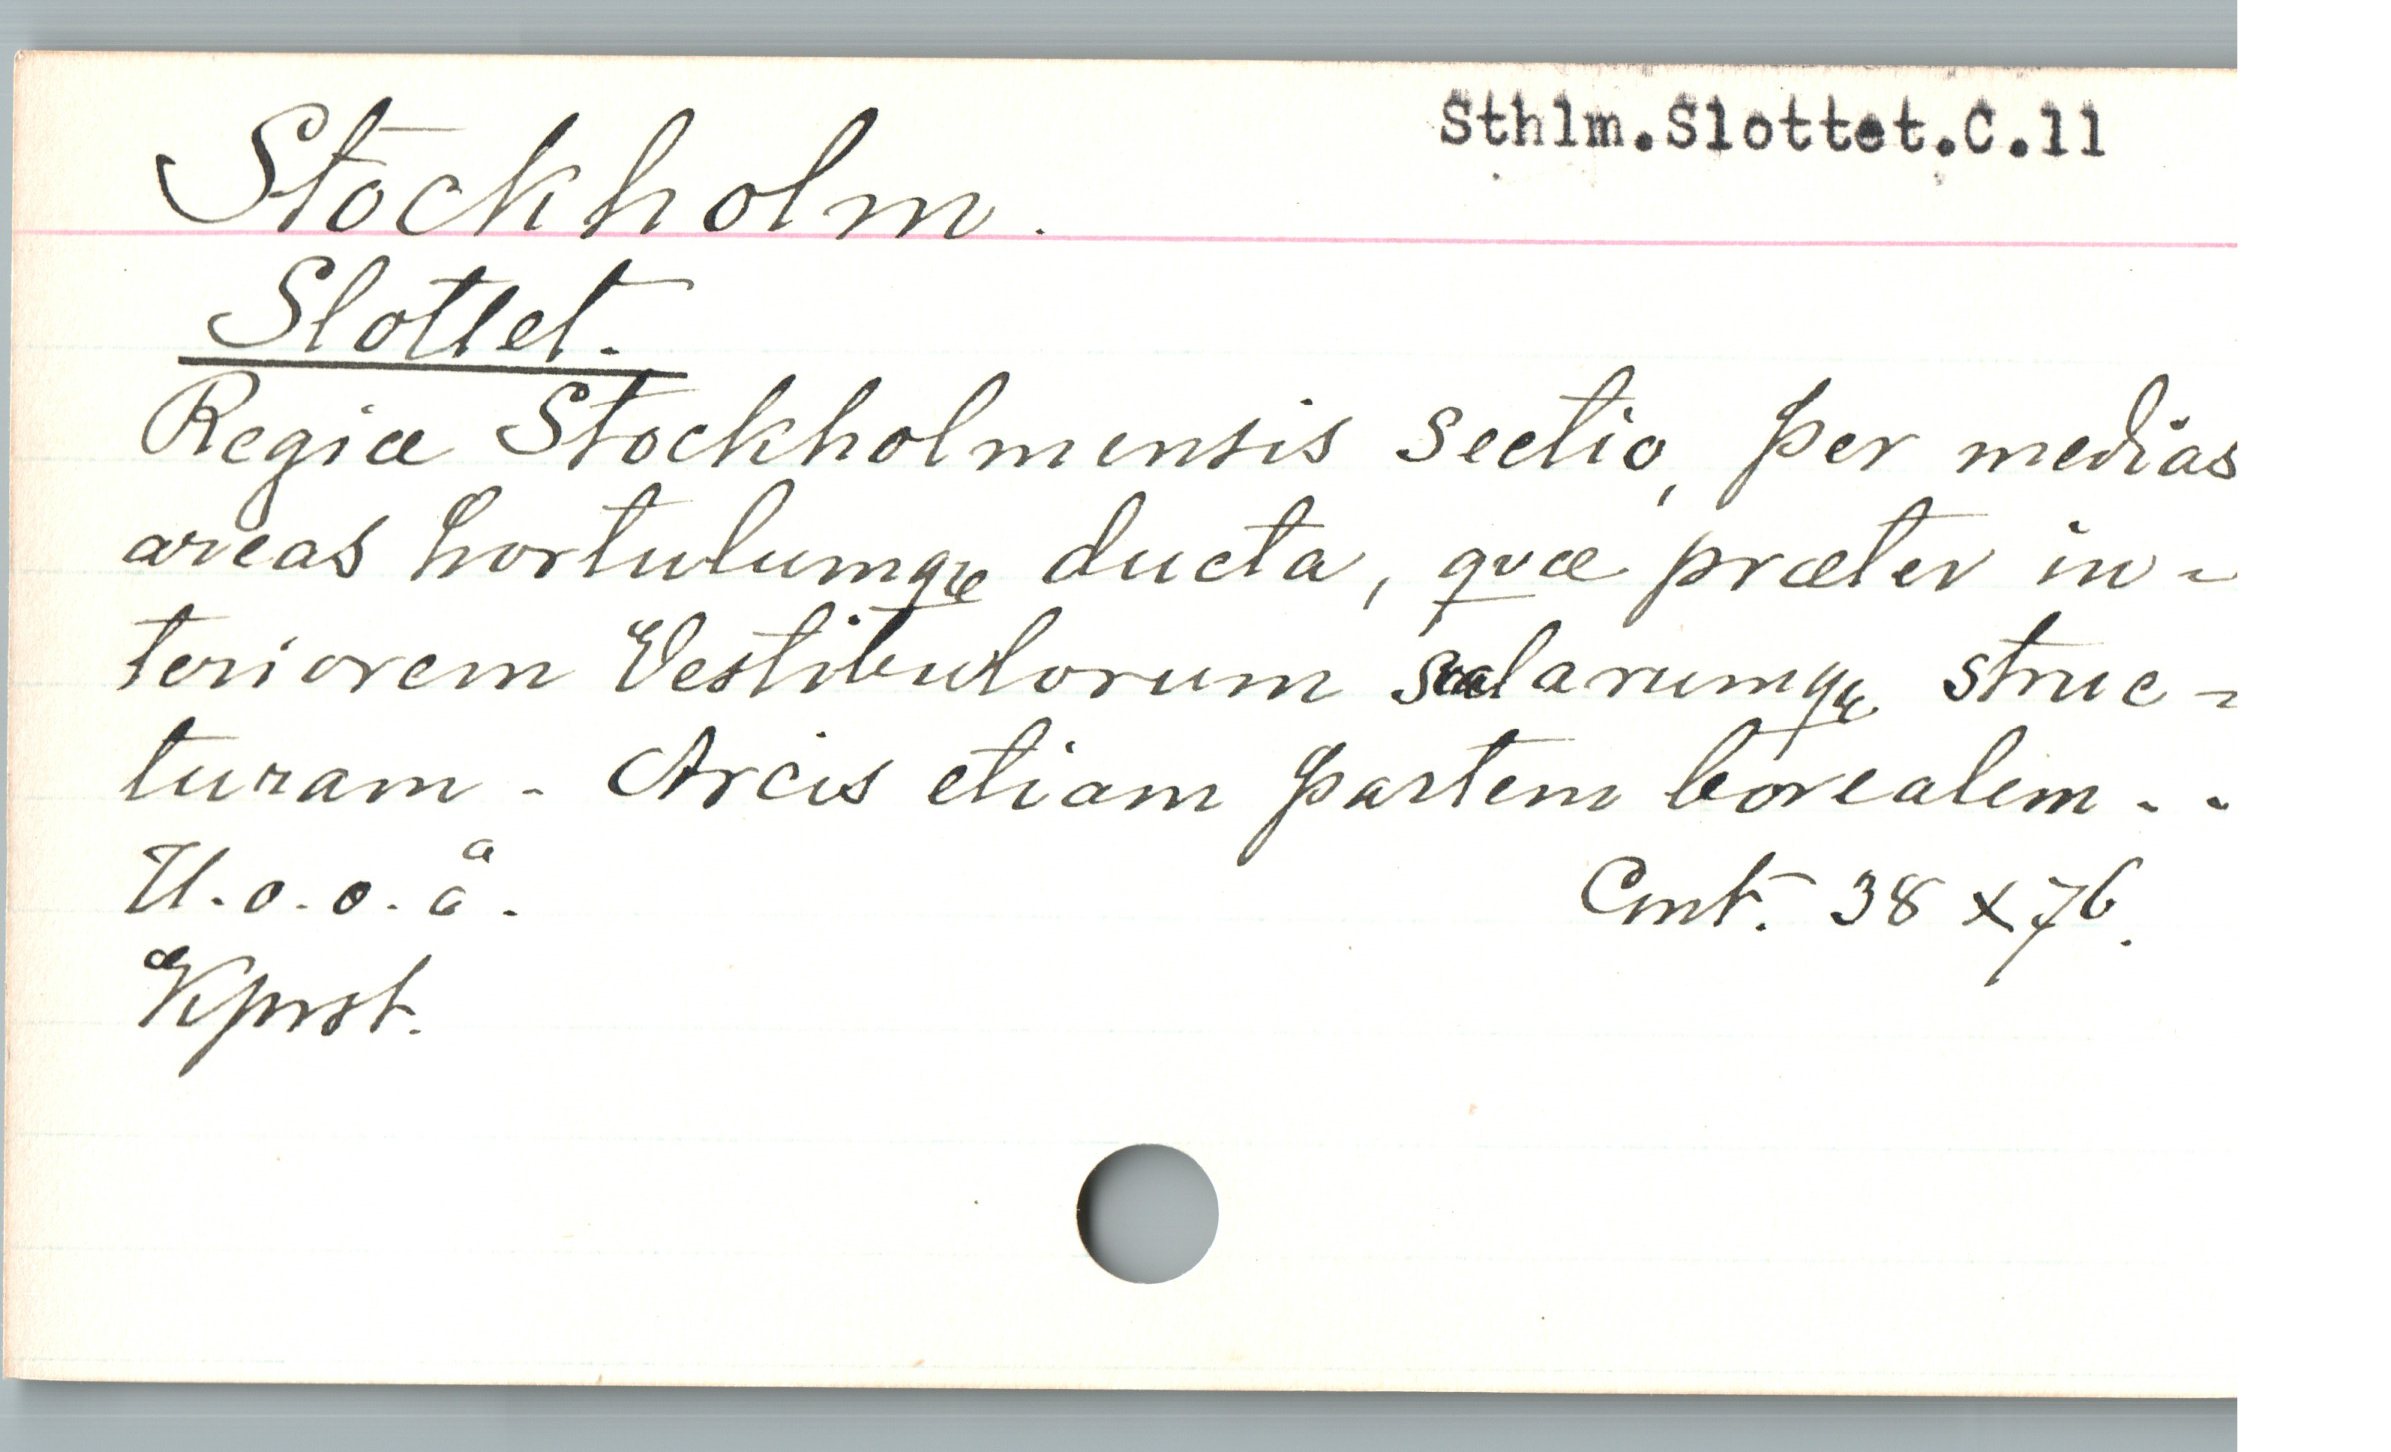 Sthlm.Slottet.C.11
Stockholm.
Slottet.
Regiæ Stockholmensis sectio, per medias
areas hortulumque ducta, qvæ præter in-
teriorem Vestibulorum scalarumque struc-
turam - Arcis etiam partem borealem - -
U.o.o.å. Cmt. 38 x 76.
Kprst.